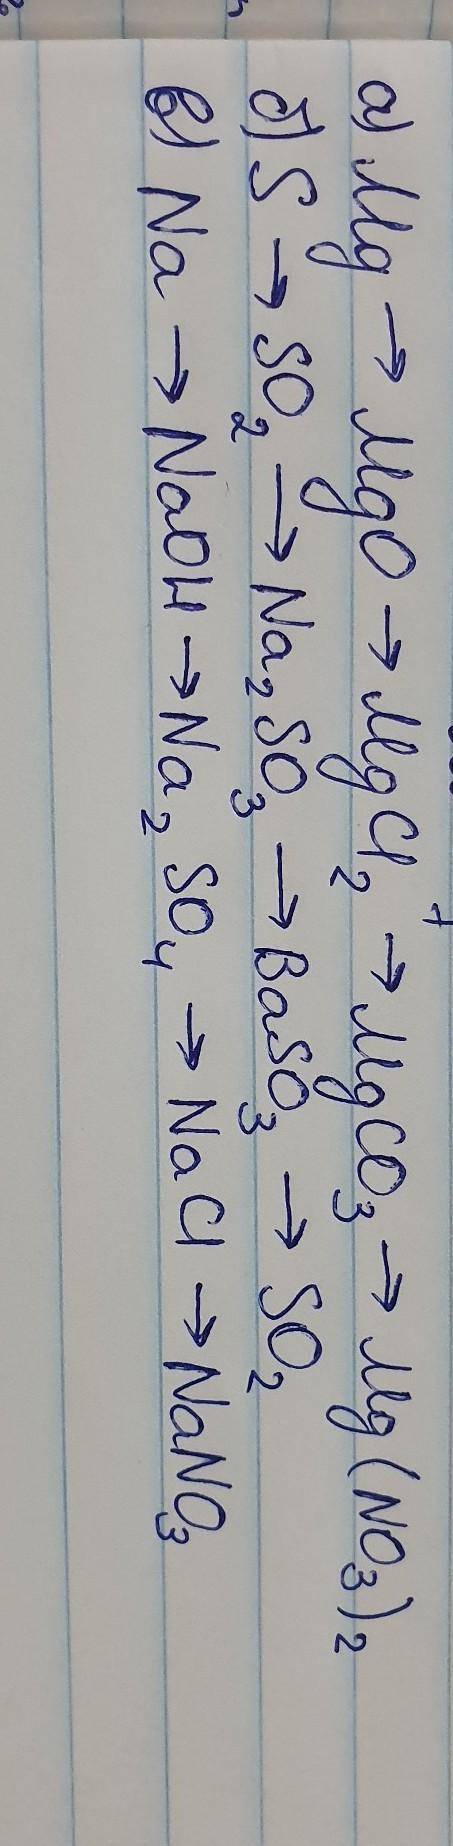 а) Mg → MgO → MgCl₂ → MgCO₃ → Mg(NO₃)₂
б) S → SO₂ → Na₂SO₃ → BaSO₃ → SO₂
в) Na → NaOH → Na₂SO₄ → NaCl → NaNO₃